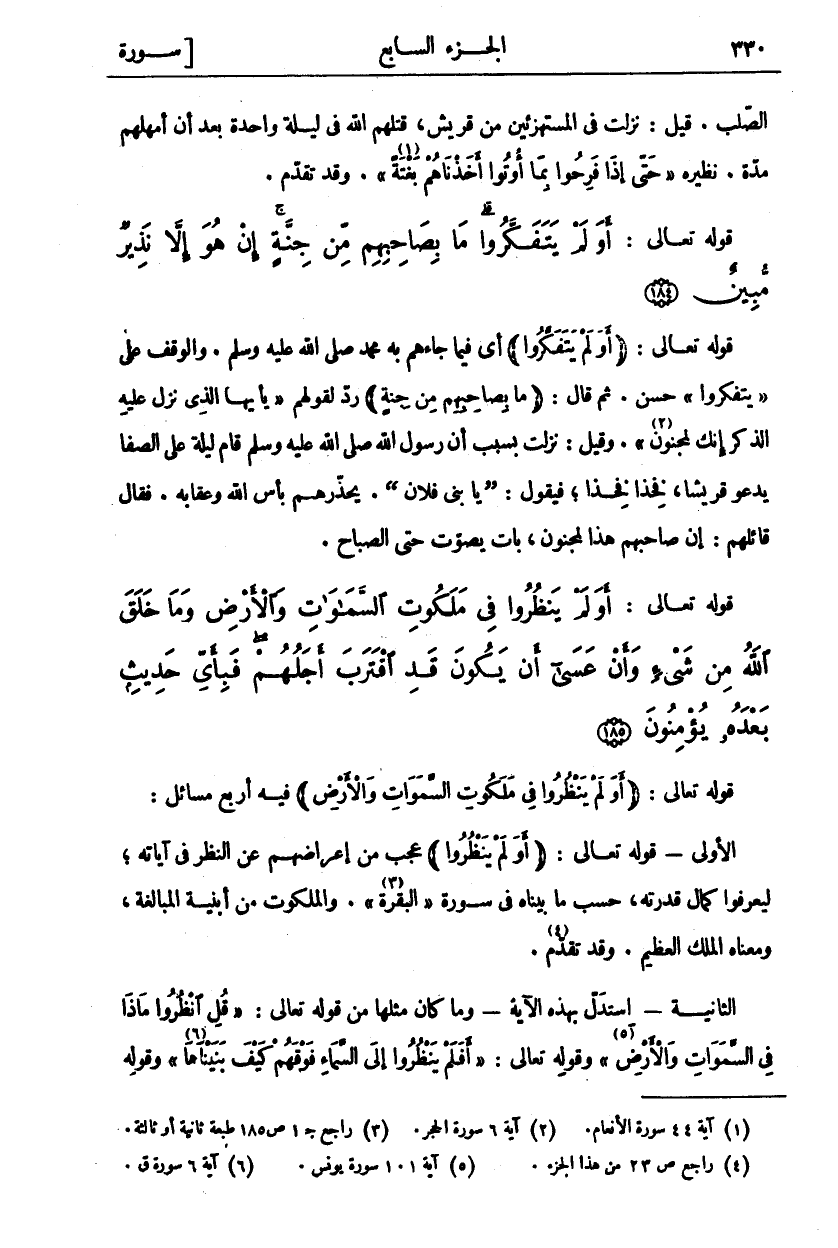 ٣٣٠ الجـزء السـابع [ سـورة
الصّلب . قيل : نزلت فى المستهزئين من قريش، قتلهم الله فى ليلة واحدة بعد أن أمهلهم
مدّة . نظيره « حَتَّى إِذَا فَرِحُوا بِمَا أُوتُوا أَخَذْنَاهُمْ بَغْتَةً (١) » . وقد تقدّم .
قوله تعـالى : أَوَلَمْ يَتَفَكَّرُوا ۗ مَا بِصَاحِبِهِم مِّن جِنَّةٍ ۚ إِنْ هُوَ إِلَّا نَذِيرٌ
مُّبِينٌ ١٨٤
قوله تعـالى : ﴿ أَوَلَمْ يَتَفَكَّرُوا ﴾ أى فيما جاءهم به محمد صلى الله عليه وسلم . والوقف على
« يتفكروا » حسن . ثم قال : ﴿ مَا بِصَاحِبِهِم مِن جِنةٍ ﴾ ردّ لقولهم « يأيهـا الذى نزل عليه
الذكر إنك لمجنون (٢) » . وقيل : نزلت بسبب أن رسول الله صلى الله عليه وسلم قام ليلة على الصفا
يدعو قريشا، فخذا فخـذا ؛ فيقول : ”يا بنى فلان“ . يحذّرهـم بأس الله وعقابه . فقال
قائلهم : إن صاحبهم هذا لمجنون ، بات يصوّت حتى الصباح .
قوله تعـالى : أَوَلَمْ يَنظُرُوا فِى مَلَكُوتِ ٱلسَّمَـٰوَٰتِ وَٱلْأَرْضِ وَمَا خَلَقَ
ٱللَّهُ مِن شَىْءٍ وَأَنْ عَسَىٰٓ أَن يَكُونَ قَدِ ٱقْتَرَبَ أَجَلُهُمْ ۖ فَبِأَىِّ حَدِيثٍۭ
بَعْدَهُۥ يُؤْمِنُونَ ١٨٥
قوله تعالى : ﴿ أَوَلَمْ يَنْظُرُوا فِى مَلَكُوتِ السَّمَوَاتِ وَالْأَرْضِ ﴾ فيـه أربع مسائل :
الأولى — قوله تعـالى : ﴿ أَوَلَمْ يَنْظُرُوا ﴾ عجب من إعراضهـم عن النظر فى آياته ؛
ليعرفوا كمال قدرته، حسب ما بيناه فى سـورة « البقرة (٣) » . والملكوت من أبنيـة المبالغة ،
ومعناه الملك العظيم . وقد تقدّم (٤) .
الثانيـة — استدلّ بهذه الآية — وما كان مثلها من قوله تعالى : « قُلِ ٱنْظُرُوا مَاذَا
فِى السَّمَوَاتِ وَالْأَرْضِ (٥) » وقوله تعالى : « أَفَلَمْ يَنْظُرُوا إِلَى السَّمَاءِ فَوْقَهُمْ كَيْفَ بَنَيْنَاهَا (٦) » وقوله
(١) آية ٤٤ سورة الأنعام. (٢) آية ٦ سورة الحجر. (٣) راجع جـ ١ ص ١٨٥ طبعة ثانية أو ثالثة .
(٤) راجع ص ٢٣ من هذا الجزء . (٥) آية ١٠١ سورة يونس . (٦) آية ٦ سورة ق .